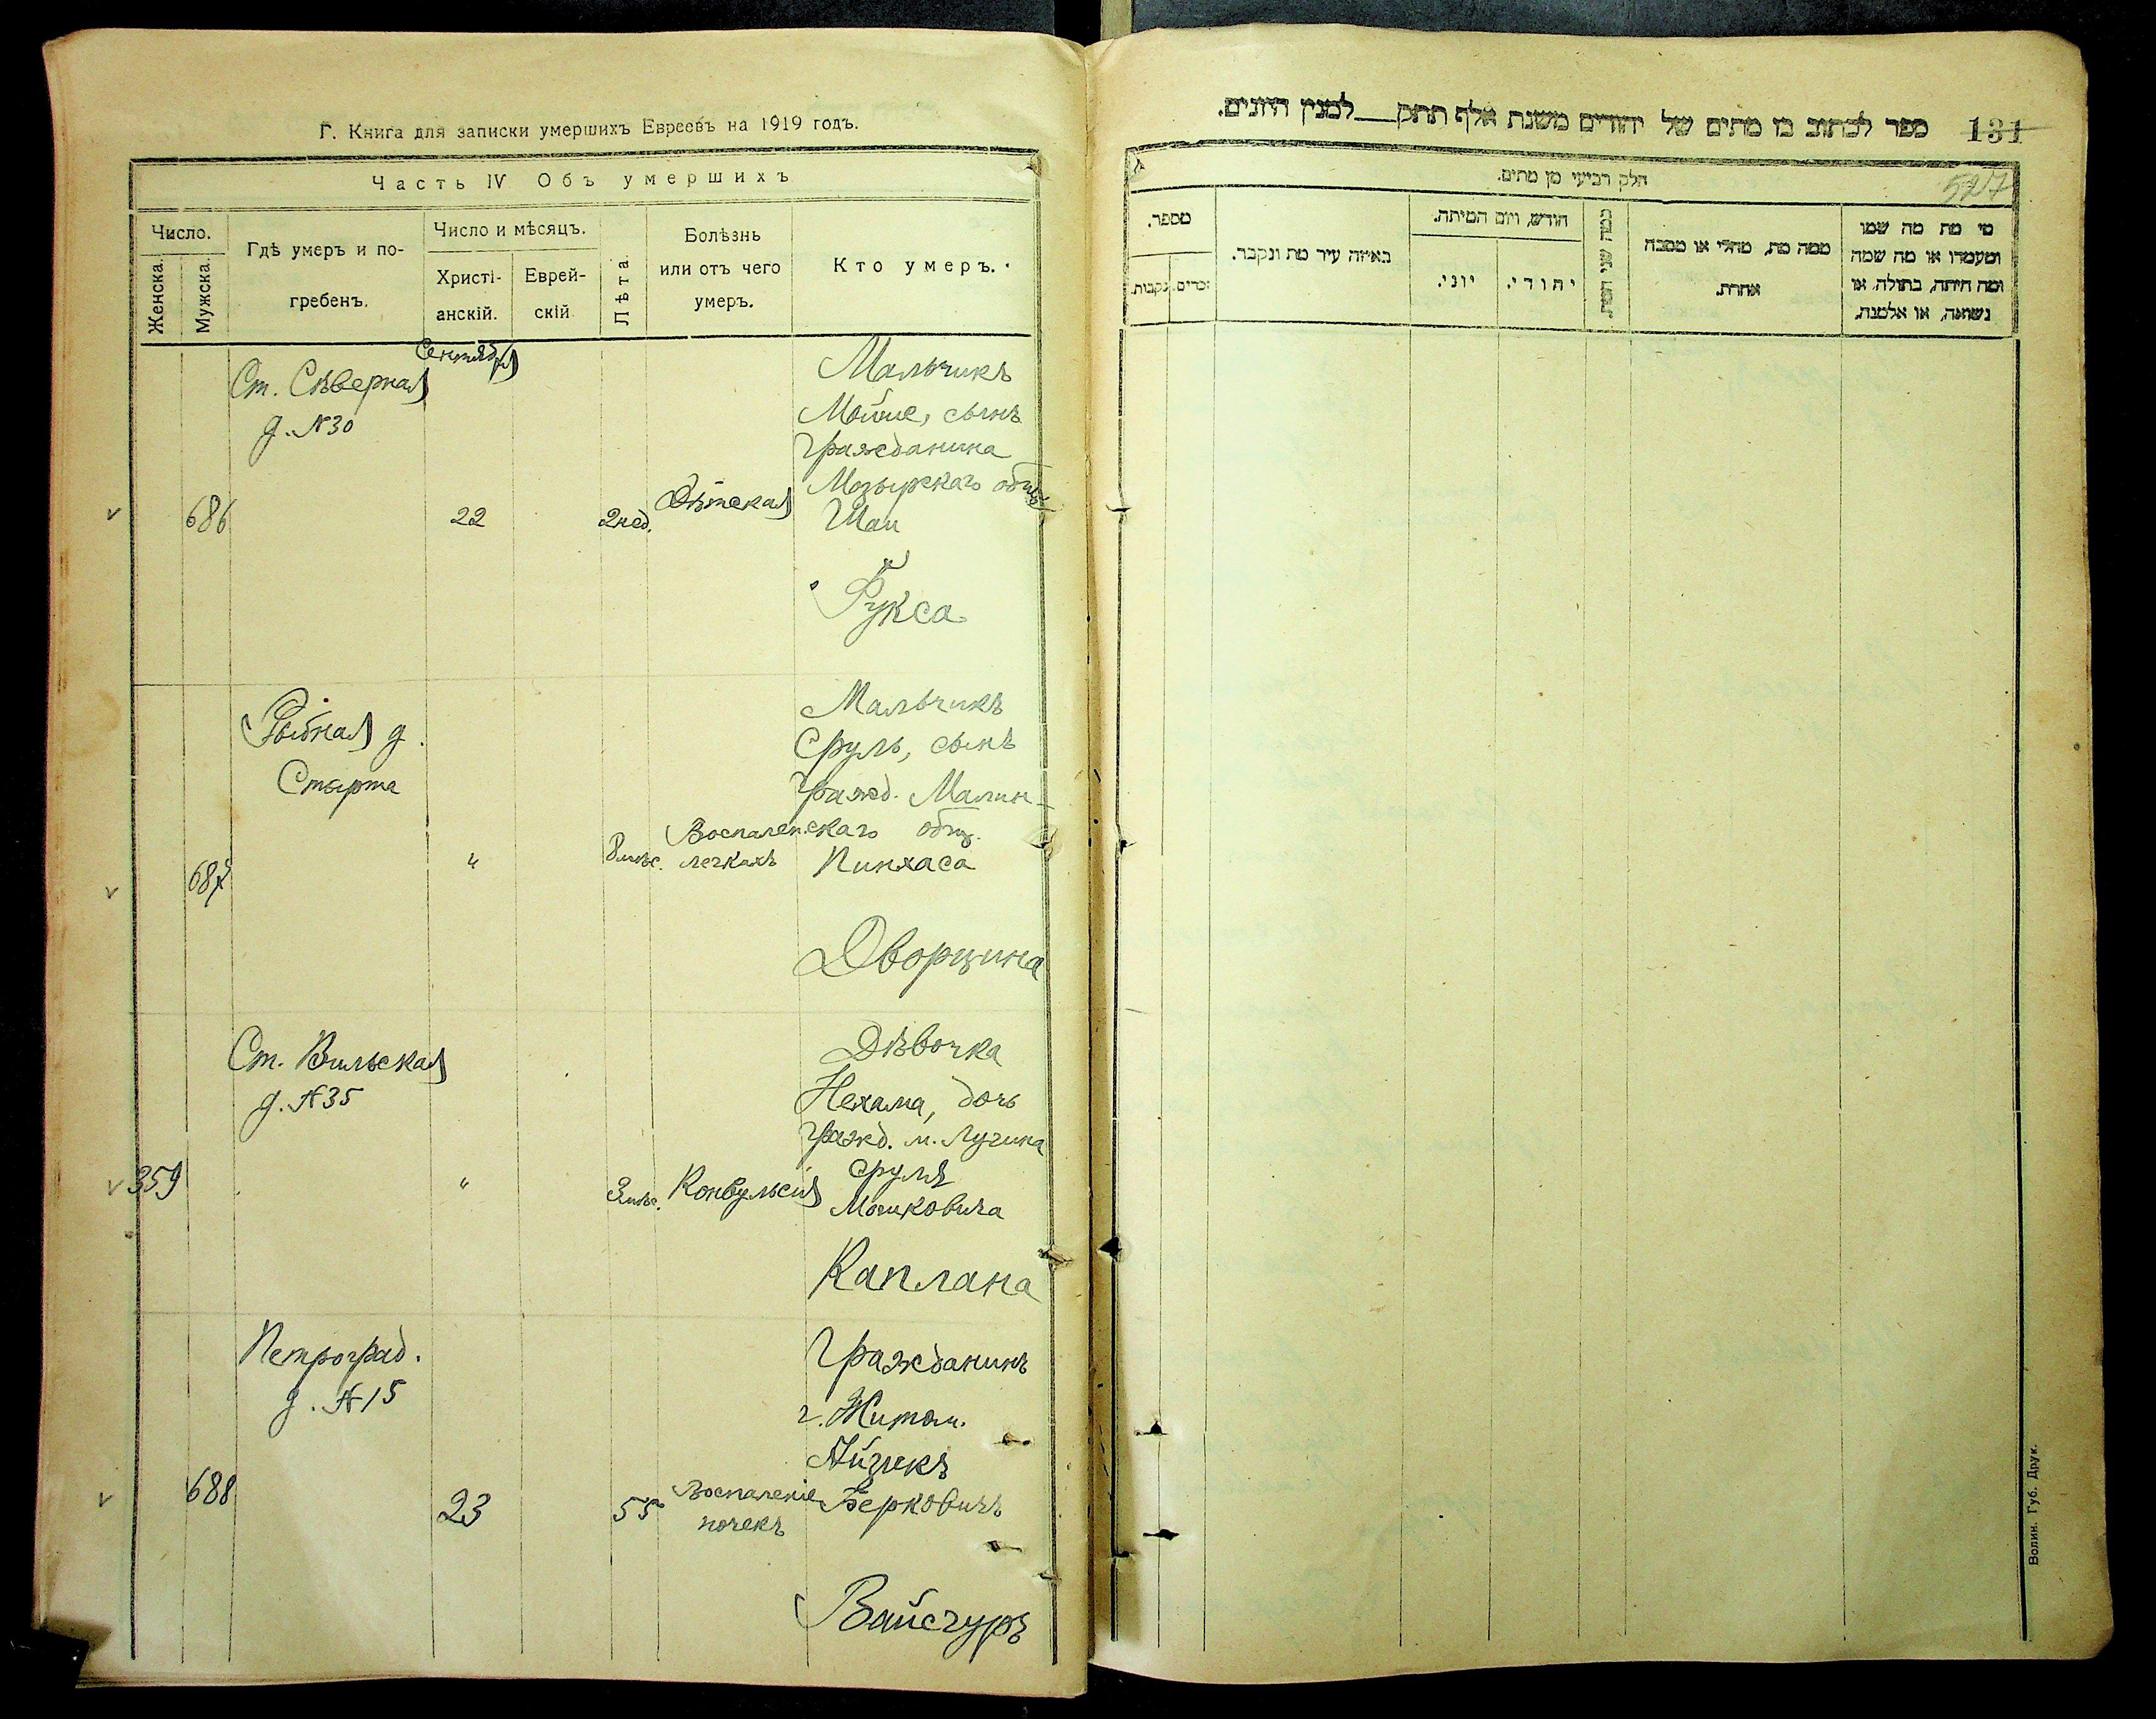 Г. Книга для записки умершихъ Евреевъ на 1919 годъ.
Часть IV Объ умершихъ
Число.
Женска.
Мужска.
Гдѣ умеръ и по-
гребенъ.
Число и мѣсяцъ.
Христі-
анскій.
Еврей-
скій
Лѣта
Болѣзнь
или отъ чего
умеръ.
Кто умеръ.
Сентября
Ст. Сѣверная
д. №30
686
22
2 нед.
Дѣтская
Мальчикъ
Мойше, сынъ
Гражданина
Мозырскаго общ.
Шаи
Фукса
Рыбная д.
Стырта
687
"
8 мѣс.
Воспален.
легкихъ
Мальчикъ
Сруль, сынъ
Гражд. Малин-
скаго общ.
Пинхаса
Дворцина
Ст. Вильская
д. №35
359
"
3 мѣс.
Конвульсія
Дѣвочка
Нехама, дочь
Гражд. м. Лугина
Сруля
Мошковича
Каплана
Петроград.
д. №15
688
23
55
Воспаленіе
почекъ
Гражданинъ
г. Житом.
Айзикъ
Берковичъ
Вайсгуръ
ספר לכתוב בו מתים של יהודים משנת אלף תתק___למנין היונים.
131
527
חלק רביעי מן מתים.
מספר.
זכרים.
נקבות.
באיזה עיר מת ונקבר.
חודש, ויום המיתה.
יוני.
יהודי.
כמה שני המת.
ממה מת, מחלי או מסבה
אחרת.
מי מת מה שמו
ומעמדו או מה שמה
ומה היתה, בתולה, או
נשואה, או אלמנה.
Волин. Губ. Друк.